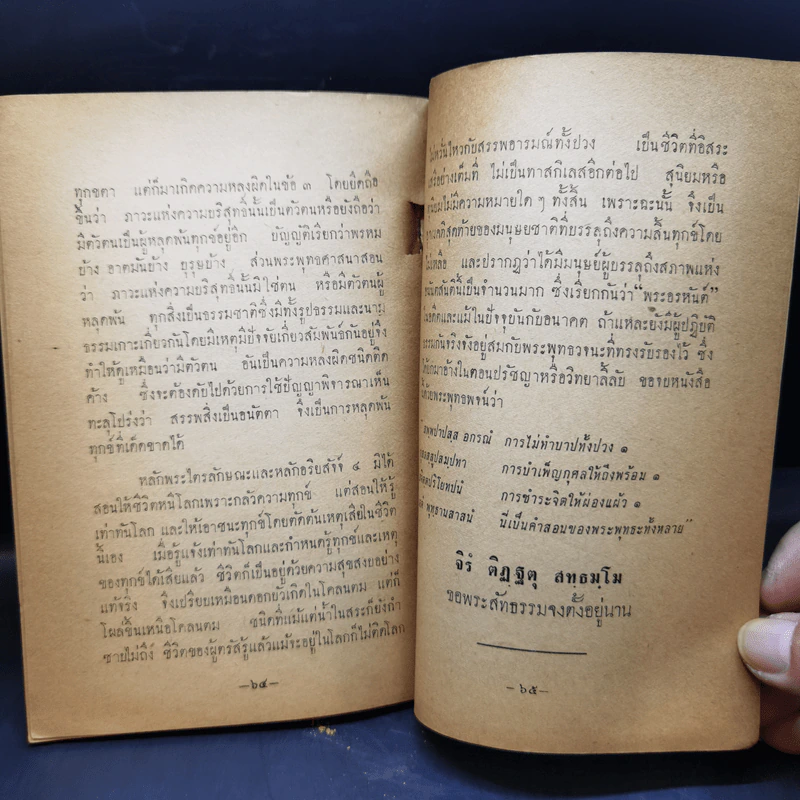 ทุกขตา แต่ก็มาเกิดความหลงผิดในข้อ ๓ โดยยึดถือ
ขึ้นว่า ภาวะแห่งความบริสุทธิ์นั้นเป็นตัวตนหรือยังถือว่า
มีตัวตนเป็นผู้หลุดพ้นทุกข์อยู่อีก บัญญัติเรียกว่าพรหม
บ้าง อาตมันบ้าง บุรุษบ้าง ส่วนพระพุทธศาสนาสอน
ว่า ภาวะแห่งความบริสุทธิ์นั้นมิใช่ตน หรือมีตัวตนผู้
หลุดพ้น ทุกสิ่งเป็นธรรมชาติซึ่งมีทั้งรูปธรรมและนาม
ธรรมเกาะเกี่ยวกันโดยมีเหตุมีปัจจัยเกี่ยวสัมพันธ์กันอยู่จึง
ทำให้ดูเหมือนว่ามีตัวตน อันเป็นความหลงผิดชนิดติด
ค้าง ซึ่งจะต้องดับไปด้วยการใช้ปัญญาพิจารณาเห็น
ทะลุโปร่งว่า สรรพสิ่งเป็นอนัตตา จึงเป็นการหลุดพ้น
ทุกข์ที่เด็ดขาดได้
หลักพระไตรลักษณะและหลักอริยสัจจ์ ๔ มิได้
สอนให้ชีวิตหนีโลกเพราะกลัวความทุกข์ แต่สอนให้รู้
เท่าทันโลก และให้เอาชนะทุกข์โดยตัดต้นเหตุเสียในชีวิต
นี้เอง เมื่อรู้แจ้งเท่าทันโลกและกำหนดรู้ทุกข์และเหตุ
ของทุกข์ได้เสียแล้ว ชีวิตก็เป็นอยู่ด้วยความสุขสงบอย่าง
แท้จริง จึงเปรียบเหมือนดอกบัวเกิดในโคลนตม แต่ก็
โผล่ขึ้นเหนือโคลนตม ชนิดที่แม้แต่น้ำในสระก็ยังกำ
ซาบไม่ถึง ชีวิตของผู้ตรัสรู้แล้วแม้จะอยู่ในโลกก็ไม่ติดโลก
—๖๔—
ไม่หวั่นไหวกับสรรพอารมณ์ทั้งปวง เป็นชีวิตที่อิสระ
เสรีอย่างเต็มที่ ไม่เป็นทาสกิเลสอีกต่อไป สุนิยมหรือ
ทุนิยมไม่มีความหมายใด ๆ ทั้งสิ้น เพราะฉะนั้น จึงเป็น
ที่สุดท้ายของมนุษยชาติที่บรรลุถึงความสิ้นทุกข์โดย
ไม่เหลือ และปรากฏว่าได้มีมนุษย์ผู้บรรลุถึงสภาพแห่ง
สันติ์นี้เป็นจำนวนมาก ซึ่งเรียกกันว่า“พระอรหันต์”
ในอดีตและแม้ในปัจจุบันกับอนาคต ถ้าแหละยังมีผู้ปฏิบัติ
ธรรมกันจริงจังอยู่สมกับพระพุทธวจนะที่ทรงรับรองไว้ ซึ่ง
ได้ยกมาอ้างในตอนปรัชญาหรือวิทยาลิลัย ขอจบหนังสือ
ด้วยพระพุทธพจน์ว่า
สพฺพปาปสฺส อกรณํ การไม่ทำบาปทั้งปวง ๑
กุสลสฺสูปสมฺปทา การบำเพ็ญกุศลให้ถึงพร้อม ๑
สจิตฺตปริโยทปนํ การชำระจิตให้ผ่องแผ้ว ๑
เอตํ พุทฺธานสาสนํ นี่เป็นคำสอนของพระพุทธะทั้งหลาย”
จิรํ ติฏฺฐตุ สทฺธมฺโม
ขอพระสัทธรรมจงตั้งอยู่นาน
—๖๕—